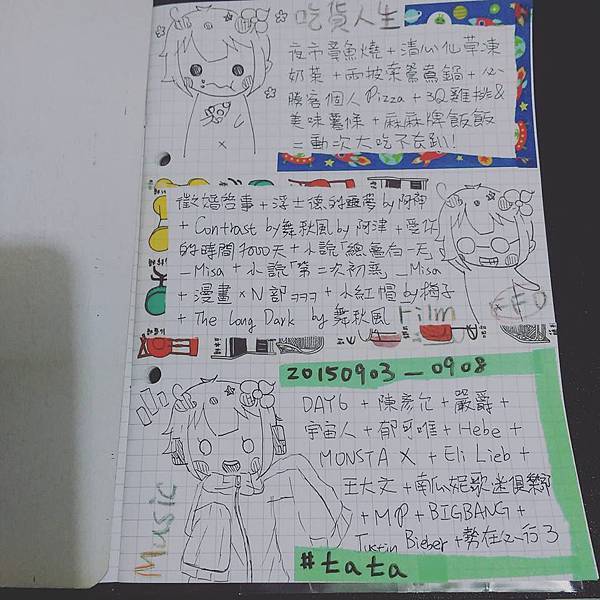 吃貨人生
夜市章魚燒+清心仙草凍
奶茶+両披索鴛鴦鍋+必
勝客個人Pizza+3Q雞排&
美味薯條+麻麻牌飯飯
=動次大吃不去趴!
徵婚啓事+浮士德的噩夢by阿神
+Contrast by舞秋風by阿津+愛你
的時間7000天+小說「總舊有一天
_Misa+小說「第二次初戀」_Misa
+漫畫×N部ㄋㄋㄋ+小紅帽by橘子
+The Long Dark by舞秋風
Film
20150903—0908
DAY6+陳彥允+嚴爵+
宇宙人+郁可唯+Hebe+
MONSTA X+Eli Lieb+
王大文+南瓜妮歌迷俱樂部
+MP+BIGBANG+
Justin Bieber+勢在必行3
Music
#tata